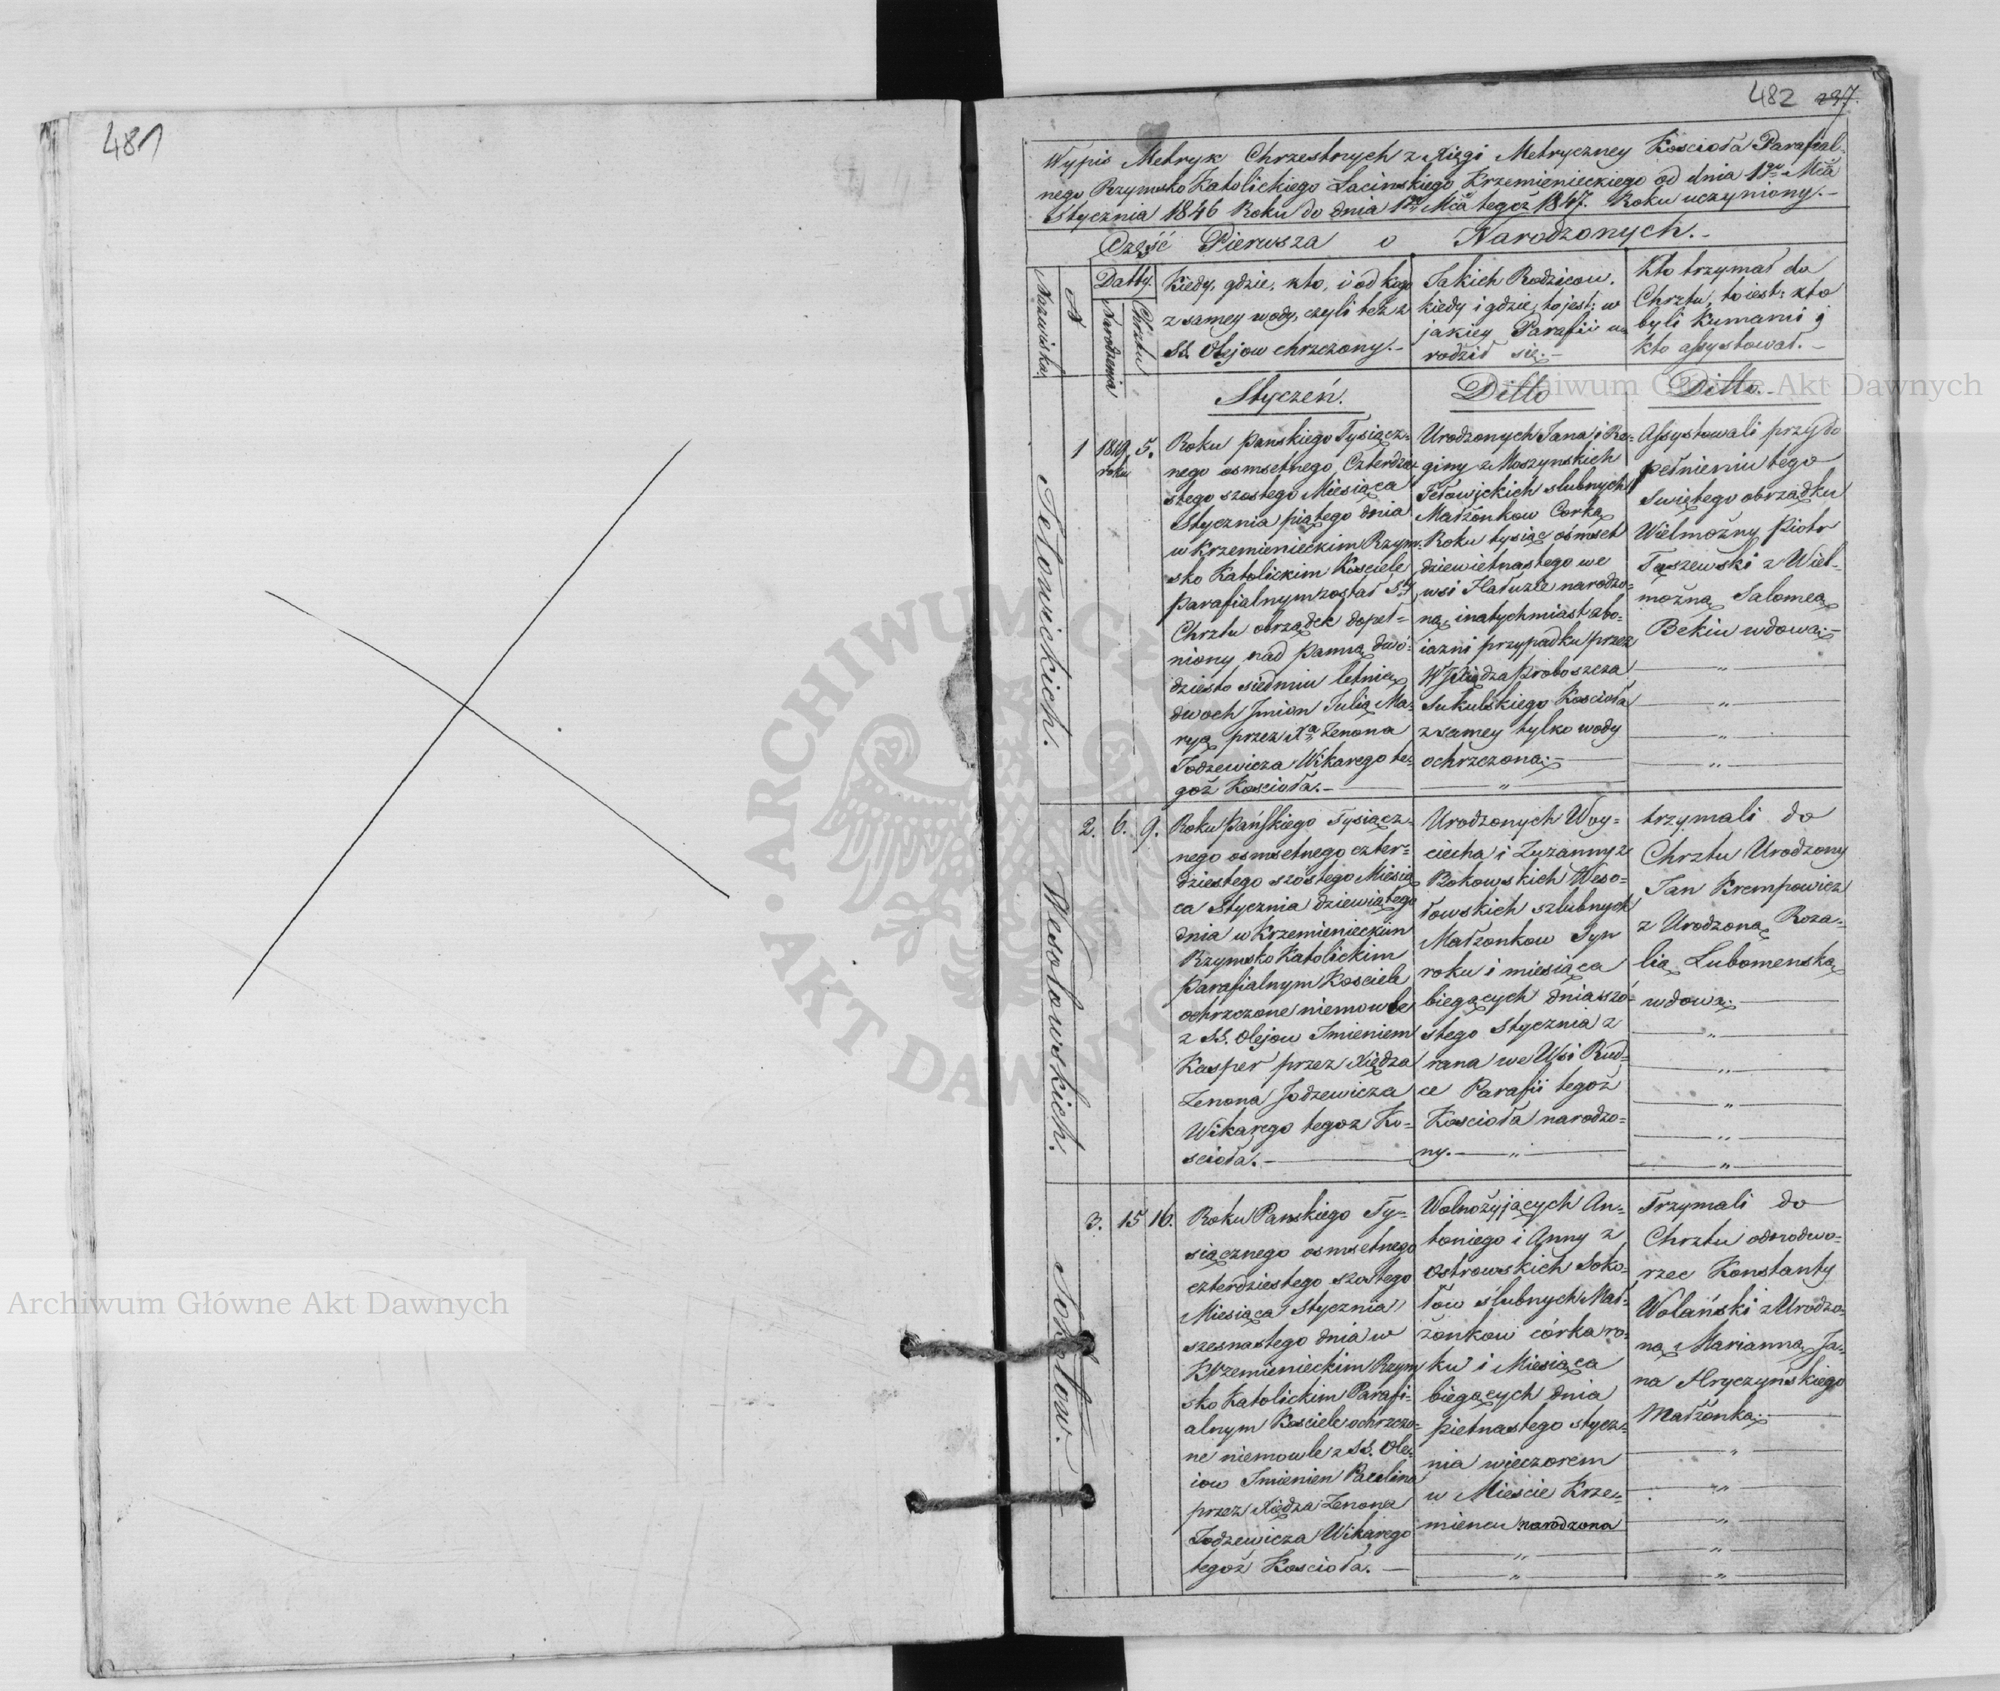 481
482 237.
Wypis Metryk Chrzestnych z Xięgi Metryczney Kościoła Parafial-
nego Rzymsko Katolickiego Łacińskiego Krzemienieckiego od dnia 1go Mca
Stycznia 1846 Roku do dnia 1go Mca tegoż 1847. Roku uczyniony.-
Część Pierwsza o Narodzonych.-
Nazwiska.
N
Datty.
Narodzenia
Chrztu
Kiedy, gdzie, kto, i od kogo
z samey wody, czyli też z
SS. Olejow chrzczony.-
Jakich Rodzicow.
kiedy i gdzie, to jest: w
jakiey Parafii u-
rodził się.-
Kto trzymał do
Chrztu, to iest: kto
byli Kumami i
kto assystował.-
Styczeń.
Ditto
Ditto.-
Fetowickich.
1
1819.
roku
5.
Roku Panskiego Tysiącz-
nego osmsetnego Czterdzie
stego szostego Miesiąca
Stycznia piątego dnia
w Krzemienieckim Rzym-
sko Katolickim Kościele
Parafialnym został St.
Chrztu obrządek dopeł-
niony nad Panną dwó-
dziesto siedmiu letnią
dwoch Jmion Julią Ma-
ryą przez Xa Zenona
Jodzewicza Wikarego te-
goż Kościoła.-
Urodzonych Jana i Re-
giny z Moszynskich
Fetowickich slubnych
Małżonkow Corka
Roku tysiąc ośmset
dziewietnastego we
wsi Hałuzie narodzo-
na, i natychmiast z bo-
iazni przypadku przez
W Xiędza Proboszcza
Sukulskiego Kościoła
z samey tylko wody
ochrzczona.-
Assystowali przy do
pełnieniu tego
Swiętego obrządku
Wielmożny Piotr
Taszewski z Wiel-
możną Salomeą
Bekiu wdową.-
Wesołowskich.
2.
6.
9.
Roku Pańskiego Tysiącz-
nego osmsetnego czter-
dziestego szóstego Miesią
ca Stycznia dziewiątego
dnia w Krzemienieckim
Rzymsko Katolickim
Parafialnym Kościele
ochrzczone niemowle
z SS. Olejow Imieniem
Kasper przez Xiędza
Zenona Jodzewicza
Wikarego tegoz Ko-
scioła.-
Urodzonych Woy-
ciecha i Zuzanny z
Bokowskich Weso-
łowskich szlubnych
Małżonkow Syn
roku i miesiąca
biegących dnia szó-
stego Stycznia z
rana we Wsi Rud-
ce Parafii tegoż
Kościoła narodzo-
ny.-
trzymali do
Chrztu Urodzony
Jan Krempowicz
z Urodzoną Roza-
lią Lubomenską
wdową.-
Sokołow.
3.
15
16.
Roku Panskiego Ty-
siącznego osmsetnego
czterdziestego szostego
Miesiąca Stycznia
szesnastego dnia w
Krzemienieckim Rzym
sko Katolickim Parafi-
alnym Kościele ochrzczo-
ne niemowle z SS. Ole-
iow Imieniem Paulina
przez Xiędza Zenona
Jodzewicza Wikarego
tegoż Kościoła.-
Wolnożyjących An-
toniego i Anny z
Ostrowskich Soko-
łow ślubnych Mał-
żonkow córka ro-
ku i Miesiąca
biegących dnia
pietnastego stycz-
nia wieczorem
w Mieście Krze-
miencu narodzona
Trzymali do
Chrztu odnodwo-
rzec Konstanty
Wolański z Urodzo-
ną Marianną Ja-
na Hryczynskiego
Małżonką.-
Archiwum Główne Akt Dawnych
Archiwum Główne Akt Dawnych
ARCHIWUM GŁ
AKT DAWNYC